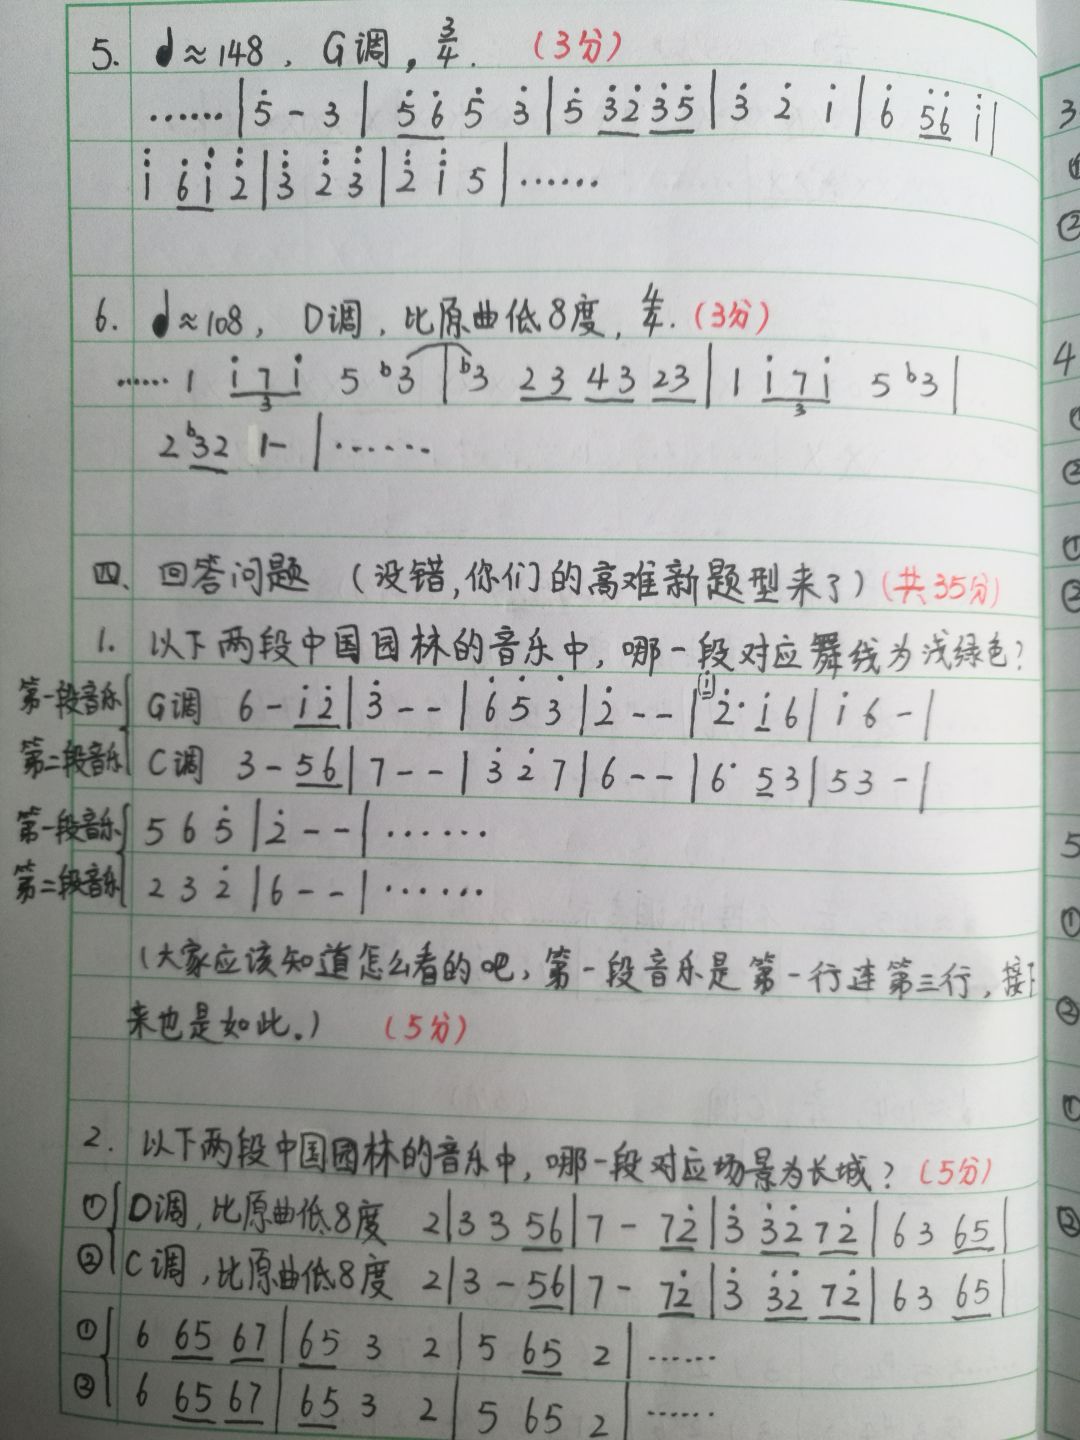 5. ♩≈148, G调, 3/4. (3分)
……|5̇ - 3| 5̇6̇ 5̇ 3̇|5̇ 3̇2̇ 3̇5̇|3̇ 2̇ i|6̇ 5̇6̇ i|
i 6̇i 2̇|3̇ 2̇ 3̇|2̇ i 5|……
6. ♩≈108, D调, 比原曲低8度, 4/4. (3分)
…… 1 i7i 5 b3|b3 23 43 23|1 i7i 5 b3|
3 3
2 b32 1-|……
四、回答问题 (没错,你们的高难新题型来了) (共35分)
1. 以下两段中国园林的音乐中, 哪一段对应舞线为浅绿色?
第一段音乐 G调 6 - i2̇|3̇ - -|6̇ 5̇ 3̇|2̇ - -|2̇· i 6|i 6 -|
第二段音乐 C调 3 - 56|7 - -|3̇ 2̇ 7|6 - -|6· 5 3|53 -|
第一段音乐 5 6 5̇|2̇ - -|……
第二段音乐 2 3 2̇|6 - -|……
(大家应该知道怎么看的吧, 第一段音乐是第一行连第三行, 接下
来也是如此。) (5分)
2. 以下两段中国园林的音乐中, 哪一段对应场景为长城? (5分)
① D调, 比原曲低8度 2|3 3 56|7 - 72̇|3̇ 3̇2̇ 72̇|6 3 65|
② C调, 比原曲低8度 2|3 - 56|7 - 72̇|3̇ 3̇2̇ 72̇|63 65|
① 6 65 67|65 3 2|5 65 2|……
② 6 65 67|65 3 2|5 65 2|……
3
①
②
4
①
②
①
②
5
①
②
①
②